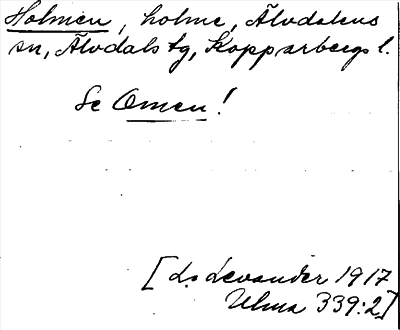 Holmen, holme, Älvdalens
sn, Älvdals tg, Kopparbergs l.
Se Omen!
[L. Levander 1917
Ulma 339:2]